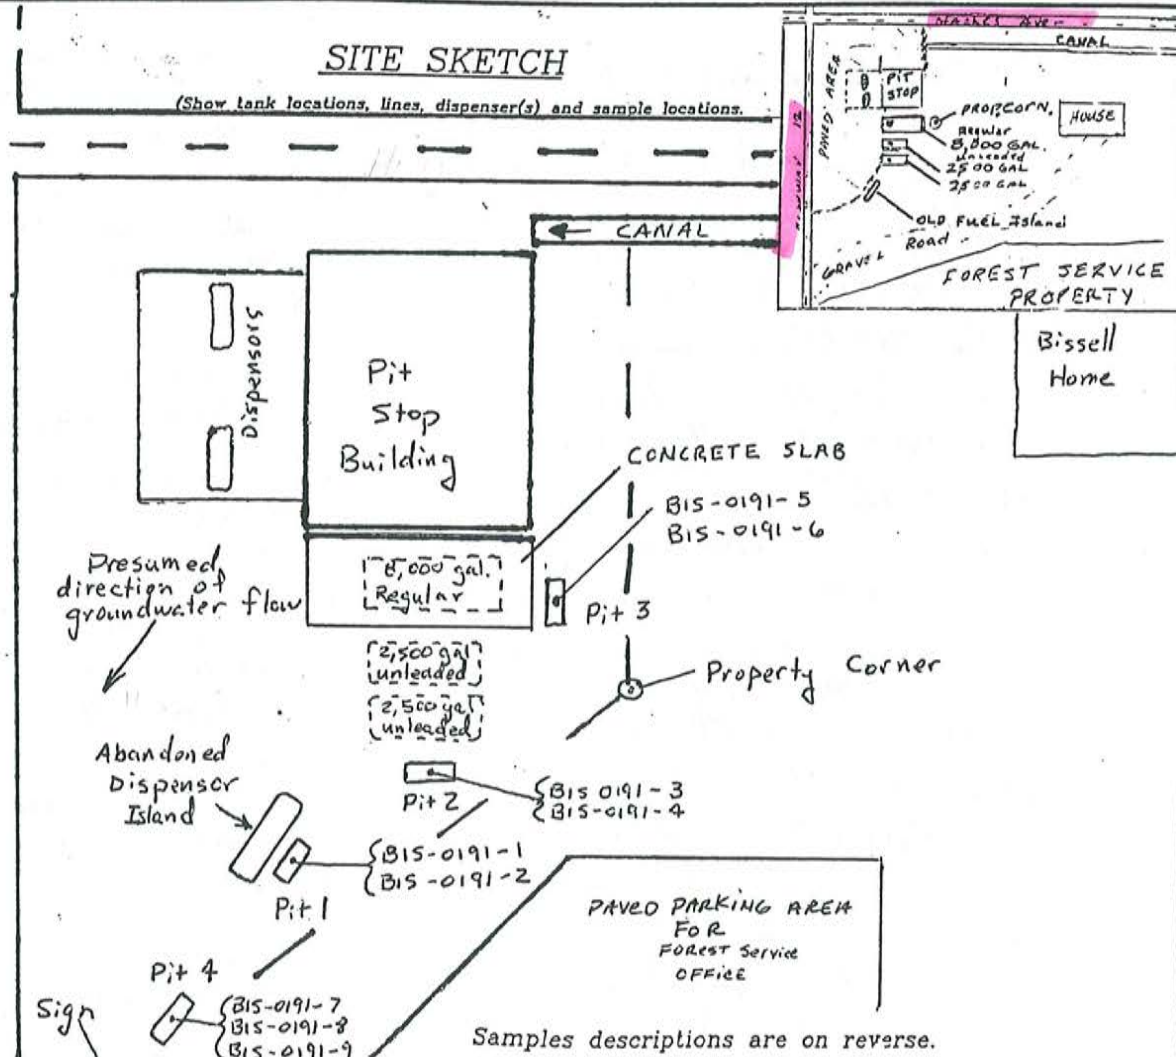 SITE SKETCH
(Show tank locations, lines, dispenser(s) and sample locations.
Naches Ave.
CANAL
PAVED AREA
PIT
STOP
PROP. CORN.
HOUSE
Regular
8,000 GAL.
unleaded
2500 GAL
2500 GAL
HIGHWAY 12
OLD FUEL Island
GRAVEL Road
FOREST SERVICE
PROPERTY
CANAL
Bissell
Home
Dispensors
Pit
Stop
Building
CONCRETE SLAB
BIS-0191-5
BIS-0191-6
8,000 gal.
Regular
Pit 3
Presumed
direction of
groundwater flow
2,500 gal
unleaded
2,500 gal
unleaded
Property Corner
Abandoned
Dispensor
Island
Pit 2
BIS 0191-3
BIS-0191-4
BIS-0191-1
BIS-0191-2
Pit 1
PAVED PARKING AREA
FOR
FOREST Service
OFFICE
Pit 4
Sign
BIS-0191-7
BIS-0191-8
BIS-0191-9
Samples descriptions are on reverse.